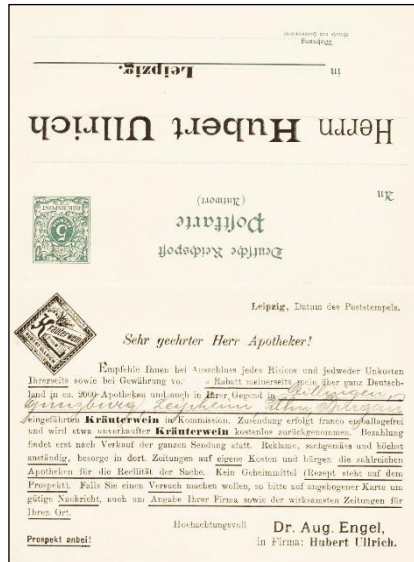 Wohnung
in Leipzig.
Herrn Hubert Ullrich
An
(Antwort)
Postkarte
Deutsche Reichspost
REICHSPOST
5
Leipzig, Datum des Poststempels.
Sehr geehrter Herr Apotheker!
Empfehle Ihnen bei Ausschluss jedes Risicos und jedweder Unkosten
Ihrerseits sowie bei Gewährung Rabatt meinerseits mein über ganz Deutsch-
land in ca. 2000 Apotheken und auch in Ihrer Gegend in
Günzburg, Leipheim, Ulm,
eingeführten Kräuterwein in Kommission. Zusendung erfolgt franco emballagefrei
und wird etwa unverkaufter Kräuterwein kostenlos zurückgenommen. Bezahlung
findet erst nach Verkauf der ganzen Sendung statt. Reklame, sachgemäss und höchst
anständig, besorge in dort. Zeitungen auf eigene Kosten und bürgen die zahlreichen
Apotheken für die Reellität der Sache. Kein Geheimmittel (Rezept steht auf dem
Prospekt). Falls Sie einen Versuch machen wollen, so bitte auf angebogener Karte um
gütige Nachricht, auch um Angabe Ihrer Firma sowie der wirksamsten Zeitungen für
Ihren Ort.
Hochachtungsvoll
Dr. Aug. Engel,
in Firma: Hubert Ullrich.
Prospekt anbei!